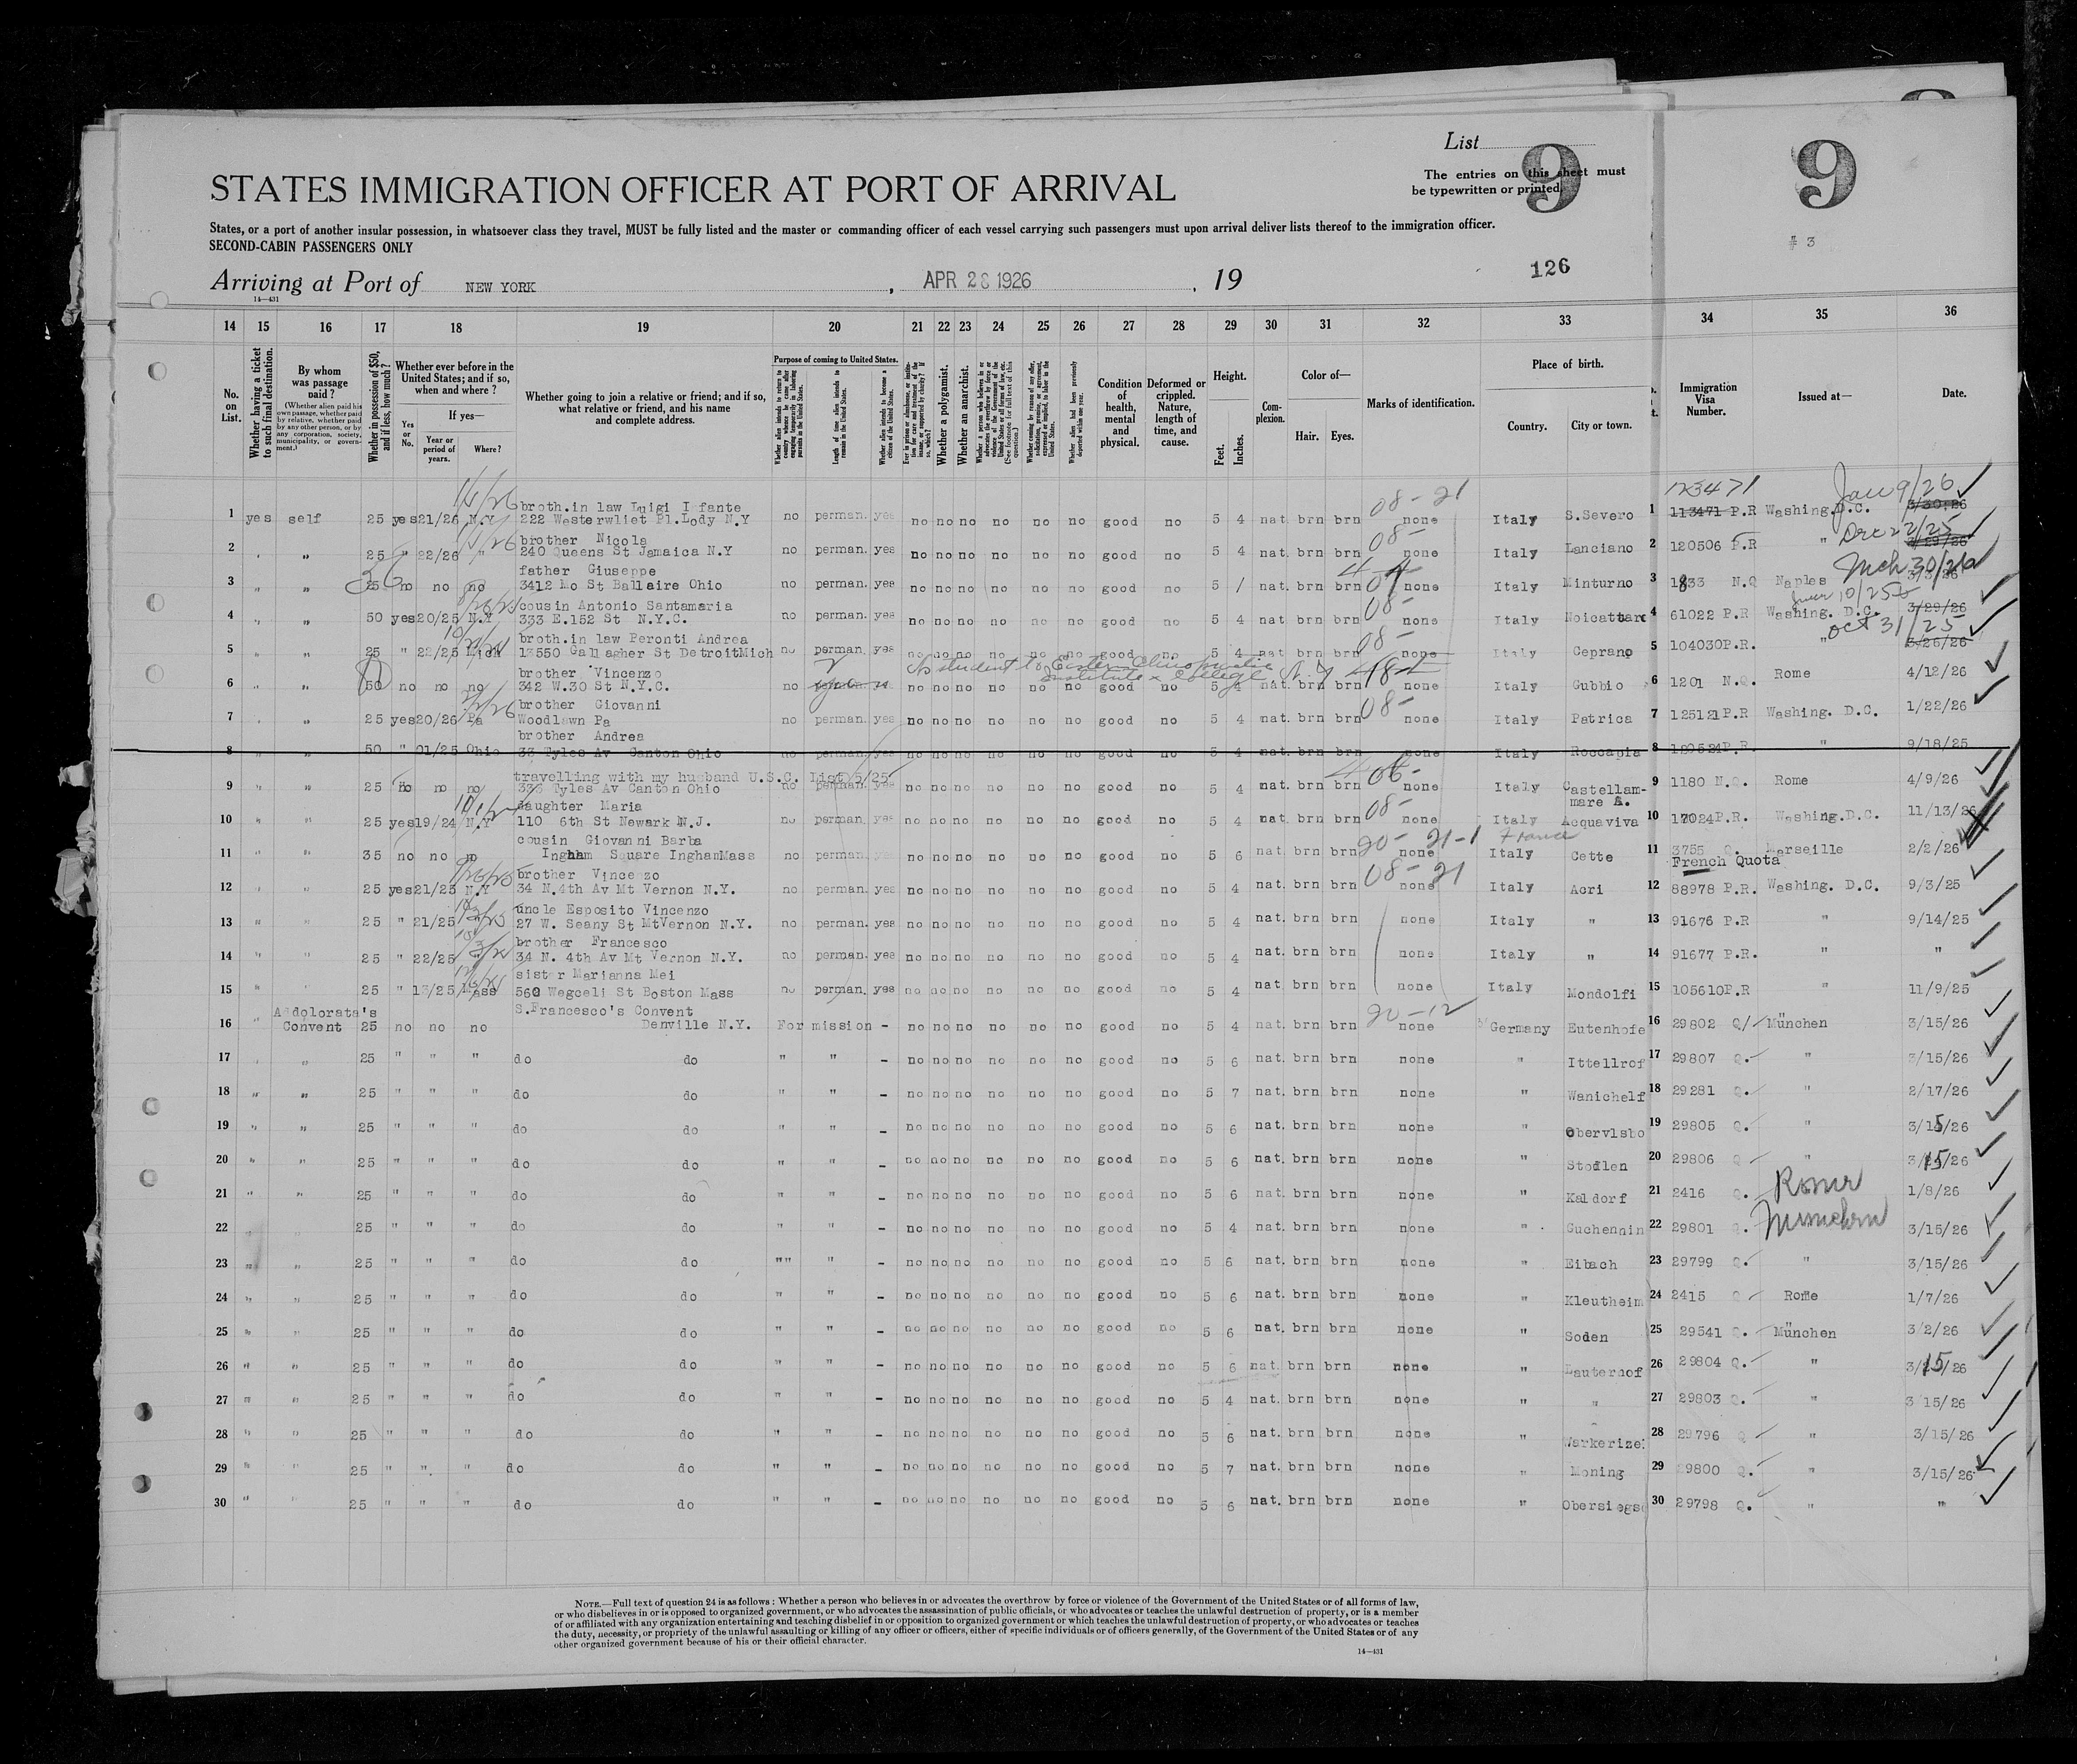 List
9
9
# 3
STATES IMMIGRATION OFFICER AT PORT OF ARRIVAL
The entries on this sheet must
be typewritten or printed.
States, or a port of another insular possession, in whatsoever class they travel, MUST be fully listed and the master or commanding officer of each vessel carrying such passengers must upon arrival deliver lists thereof to the immigration officer.
SECOND-CABIN PASSENGERS ONLY
Arriving at Port of NEW YORK, APR 28 1926, 19
126
14—431
14 15 16 17 18 19 20 21 22 23 24 25 26 27 28 29 30 31 32 33 34 35 36
No. on List.
Whether having a ticket to such final destination.
By whom was passage paid?
(Whether alien paid his own passage, whether paid by relative, whether paid by any other person, or by any corporation, society, municipality, or government.)
Whether in possession of $50, and if less, how much?
Whether ever before in the United States; and if so, when and where?
If yes—
Yes or No.
Year or period of years.
Where?
Whether going to join a relative or friend; and if so, what relative or friend, and his name and complete address.
Purpose of coming to United States.
Whether alien intends to return to country whence he came after engaging temporarily in laboring pursuits in the United States.
Length of time alien intends to remain in the United States.
Whether alien intends to become a citizen of the United States.
Whether a polygamist.
Whether an anarchist.
Condition of health, mental and physical.
Deformed or crippled. Nature, length of time, and cause.
Height.
Feet. Inches.
Complexion.
Color of—
Hair. Eyes.
Marks of identification.
Place of birth.
Country. City or town.
Immigration Visa Number.
Issued at—
Date.
123471 Jan 9/26
08- 21
broth.in law Luigi Infante
1 yes self 25 yes 21/26 N.Y 222 Westerwliet Pl.Lody N.Y no perman. yes no no no no no no good no 5 4 nat. brn brn none Italy S.Severo 1 113471 P.R Washing.D.C. 3/30/26
brother Nicola 08- Dec 22/25
2 " " 25 " 22/26 " 240 Queens St Jamaica N.Y no perman. yes no no no no no no good no 5 4 nat. brn brn none Italy Lanciano 2 120506 P.R " 3/29/26
father Giuseppe Mch 30/26
3 " " 25 no no no 3412 Mo St Ballaire Ohio no perman. yes no no no no no no good no 5 / nat. brn brn none Italy Minturno 3 1833 N.Q Naples 3/3/26
cousin Antonio Santamaria 08-
4 " " 50 yes 20/25 N.Y 333 E.152 St N.Y.C. no perman. yes no no no no no no good no 5 4 nat. brn brn none Italy Noicattaro 4 61022 P.R Washing. D.C. 3/29/26
broth.in law Peronti Andrea 08- Oct 31/25
5 " " 25 " 22/25 Mich 13550 Gallagher St Detroit Mich no perman. yes no no no no no no good no 5 4 nat brn brn none Italy Ceprano 5 104030P.R. " 3/26/26
A student to Eastern Chiropractic Institute & College N.Y
brother Vincenzo
6 " " 50 no no no 342 W.30 St N.Y.C. no no no no no no no good no 5 4 nat. brn brn none Italy Gubbio 6 1201 N.Q. Rome 4/12/26
brother Giovanni 08-
7 " " 25 yes 20/26 Pa Woodlawn Pa no perman. yes no no no no no no good no 5 4 nat. brn brn none Italy Patrica 7 125121P.R Washing. D.C. 1/22/26
brother Andrea
8 " " 50 " 01/25 Ohio 33 Tyles Av Canton Ohio no perman. yes no no no no no no good no 5 4 nat. brn brn none Italy Roccapia 8 120524P.R. " 9/18/25
travelling with my husband U.S.C. List 5/25 06-
9 " " 25 no no no 333 Tyles Av Canton Ohio no perman. yes no no no no no no good no 5 4 nat. brn brn none Italy Castellammare A. 9 1180 N.Q. Rome 4/9/26
daughter Maria 08-
10 " " 25 yes 19/24 N.Y 110 6th St Newark N.J. no perman. yes no no no no no no good no 5 4 nat. brn brn none Italy Acquaviva 10 17024P.R. Washing.D.C. 11/13/26
cousin Giovanni Barba 20- 21-1 France
11 " " 35 no no no Ingham Square InghamMass no perman. yes no no no no no no good no 5 6 nat. brn brn none Italy Cette 11 3755 Q. Marseille 2/2/26
French Quota
brother Vincenzo 08- 21
12 " " 25 yes 21/25 N.Y 34 N.4th Av Mt Vernon N.Y. no perman. yes no no no no no no good no 5 4 nat. brn brn none Italy Acri 12 88978 P.R. Washing. D.C. 9/3/25
uncle Esposito Vincenzo
13 " " 25 " 21/25 27 W. Seany St MtVernon N.Y. no perman. yes no no no no no no good no 5 4 nat. brn brn none Italy " 13 91676 P.R " 9/14/25
brother Francesco
14 " " 25 " 22/25 34 N. 4th Av Mt Vernon N.Y. no perman. yes no no no no no no good no 5 4 nat. brn brn none Italy " 14 91677 P.R. " "
sister Marianna Mei
15 " " 25 " 13/25 Mass 560 Wegceli St Boston Mass no perman. yes no no no no no no good no 5 4 nat. brn brn none Italy Mondolfi 15 105610P.R " 11/9/25
Addolorata's S.Francesco's Convent 20-12
16 " Convent 25 no no no Denville N.Y. For mission - no no no no no no good no 5 4 nat. brn brn none Germany Eutenhofe 16 29802 Q/ München 3/15/26
17 " " 25 " " " do do " " - no no no no no no good no 5 6 nat. brn brn none " Ittellrof 17 29807 Q. " 3/15/26
18 " " 25 " " " do do " " - no no no no no no good no 5 7 nat. brn brn none " Wanichelf 18 29281 Q. " 2/17/26
19 " " 25 " " " do do " " - no no no no no no good no 5 6 nat. brn brn none " Obervlsbo 19 29805 Q. " 3/15/26
20 " " 25 " " " do do " " - no no no no no no good no 5 6 nat. brn brn none " Stoflen 20 29806 Q " 3/15/26
21 " " 25 " " " do do " " - no no no no no no good no 5 6 nat. brn brn none " Kaldorf 21 2416 Q. Rome 1/8/26
22 " " 25 " " " do do " " - no no no no no no good no 5 4 nat. brn brn none " Guchennin 22 29801 Q. Munchen 3/15/26
23 " " 25 " " " do do "" " - no no no no no no good no 5 6 nat. brn brn none " Eibach 23 29799 Q. " 3/15/26
24 " " 25 " " " do do " " - no no no no no no good no 5 6 nat. brn brn none " Kleutheim 24 2415 Q Rome 1/7/26
25 " " 25 " " " do do " " - no no no no no no good no 5 6 nat. brn brn none " Soden 25 29541 Q. München 3/2/26
26 " " 25 " " " do do " " - no no no no no no good no 5 6 nat. brn brn none " Lauterhof 26 29804 Q. " 3/15/26
27 " " 25 " " " do do " " - no no no no no no good no 5 4 nat. brn brn none " " 27 29803 Q. " 3 15/26
28 " " 25 " " " do do " " - no no no no no no good no 5 6 nat. brn brn none " 28 29796 Q " 3/15/26
29 " " 25 " " " do do " " - no no no no no no good no 5 7 nat. brn brn none " Moning 29 29800 Q. " 3/15/26
30 " " 25 " " " do do " " - no no no no no no good no 5 6 nat. brn brn none " Obersiegs 30 29798 Q. " "
NOTE.—Full text of question 24 is as follows: Whether a person who believes in or advocates the overthrow by force or violence of the Government of the United States or of all forms of law,
or who disbelieves in or is opposed to organized government, or who advocates the assassination of public officials, or who advocates or teaches the unlawful destruction of property, or is a member
of or affiliated with any organization entertaining and teaching disbelief in or opposition to organized government or which teaches the unlawful destruction of property, or who advocates or teaches
the duty, necessity, or propriety of the unlawful assaulting or killing of any officer or officers, either of specific individuals or of officers generally, of the Government of the United States or of any
other organized government because of his or their official character.
14—431